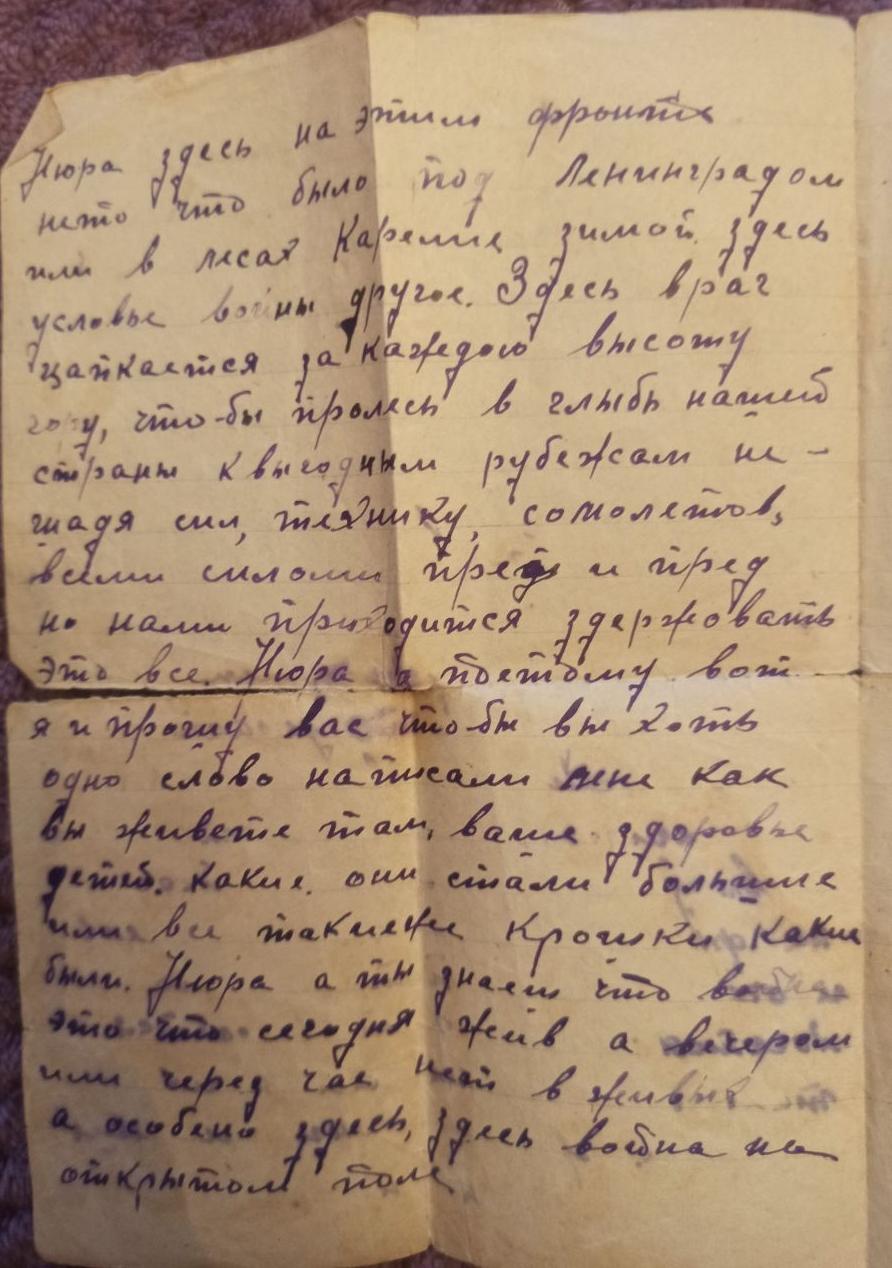 Нюра здесь на этим фронте
нето что было под Ленинградом
или в лесах Карелие зимой. здесь
условье войны другое. Здесь враг
цапкается за каждою высоту
гору, что-бы пролесь в глыбь нашей
страны к выгодным рубежам не-
щадя сил, технику, сомолетов,
всеми силами и пред
но нами приходится здержовать
это все. Нюра а поетому вот
я и прошу вас чтобы вы хоть
одно слово написали мне как
вы живете там, ваше здоровье
детей. какие они стали большие
или все такиеже крошки какие
были. Нюра а ты знаеш что война
это что сегодня жив а вечером
или через час нет в живых
а особено здесь, здесь война на
открытом поле